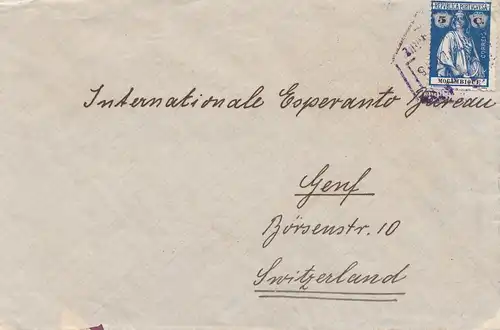 REPUBLICA PORTUGUESA
5 C.
CORREIO
MOÇAMBIQUE
Internationale Esperanto Bureau
Genf
Börsenstr. 10
Switzerland